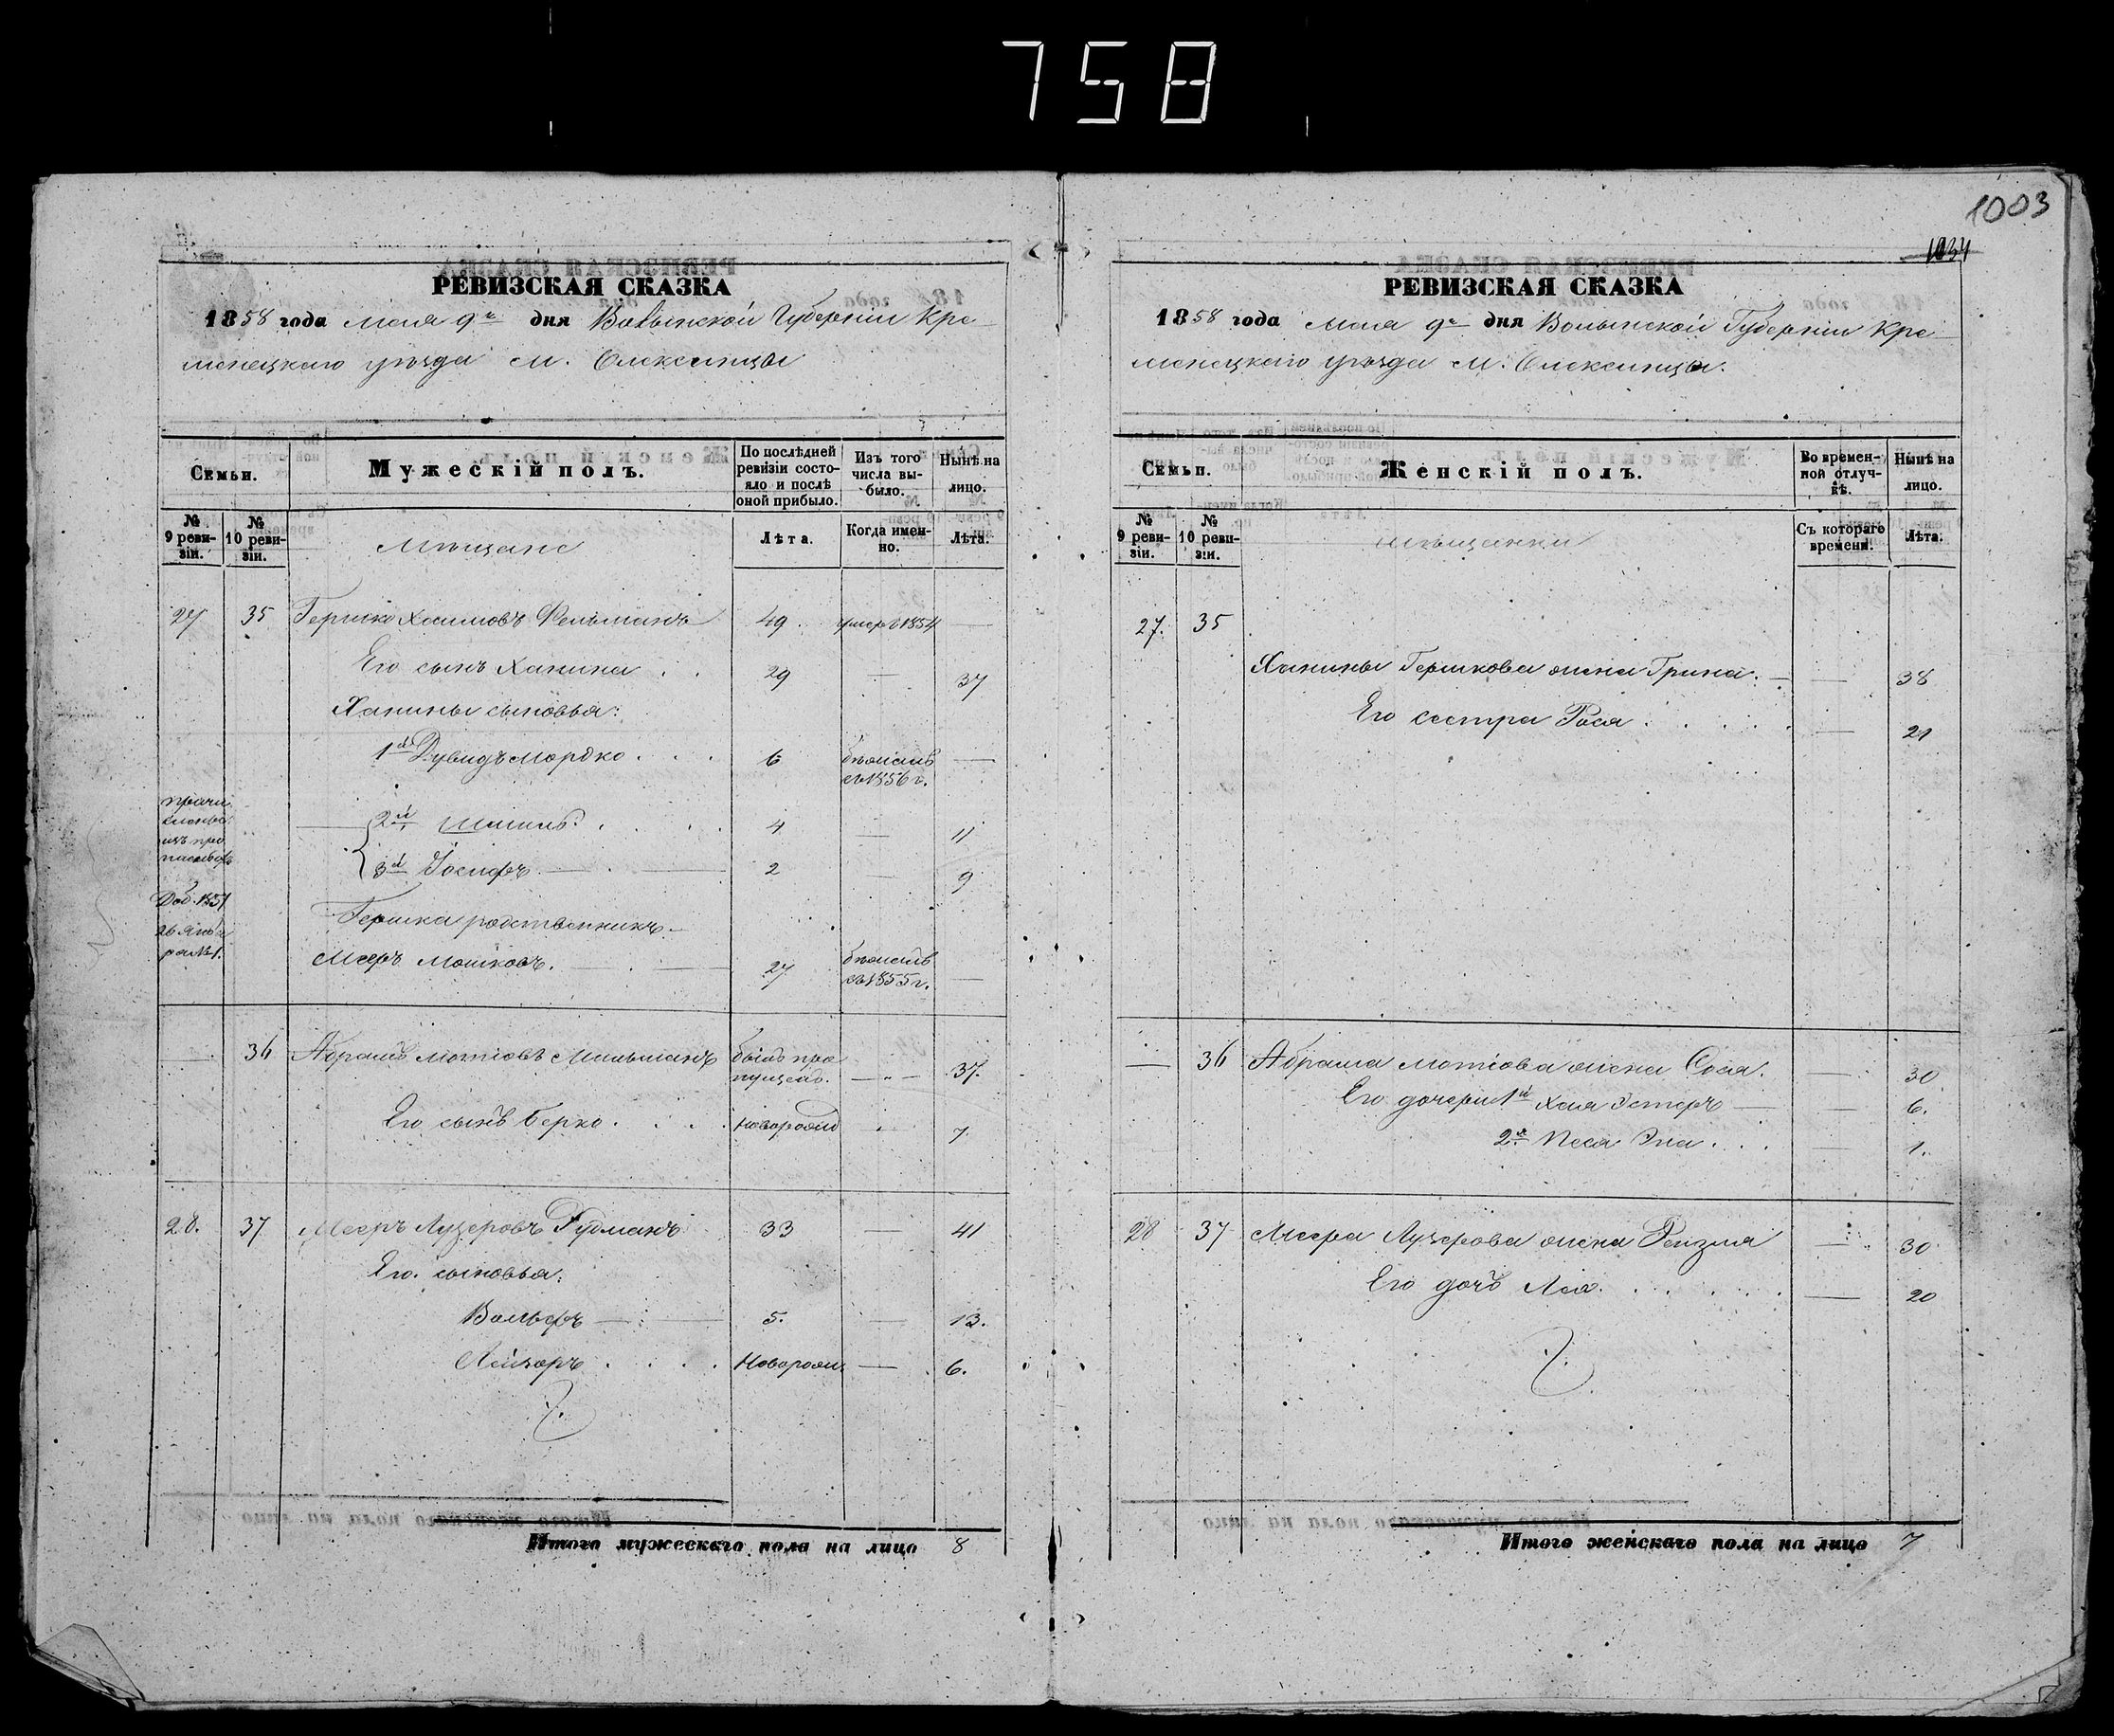 758
1003
1034
РЕВИЗСКАЯ СКАЗКА
1858 года мая 9го дня Волынской Губерніи Кре-
менецкаго уѣзда м. Олексинцы
Семьи.
Мужескій полъ.
По послѣдней ревизіи состояло и послѣ оной прибыло.
Изъ того числа выбыло.
Нынѣ на лицо.
№ 9 ревизіи.
№ 10 ревизіи.
Мѣщане
Лѣта.
Когда именно.
Лѣта.
27 35 Гершко Хаимовъ Фельманъ 49 умеръ 1854 —
Его сынъ Ханина 29 — 37
Ханины сыновья:
1й Дувидъ Мордко 6 бѣжалъ —
съ 1856 г.
2й Шмиль 4 — 11
3й Іосифъ 2 — 9
Гершка родственникъ
Мееръ Мошковъ. 27 бѣжалъ —
съ 1855 г.
— 36 Абрамъ Мотіовъ Мильманъ былъ про-
пущенъ. — 37.
Его сынъ Берко Новорожд 7
28. 37 Мееръ Лузеровъ Гутманъ 33 — 41
Его сыновья:
Вольфъ 5. — 13.
Лейзоръ Новорожд — 6.
Итого мужескаго пола на лицо 8
РЕВИЗСКАЯ СКАЗКА
1858 года мая 9го дня Волынской Губерніи Кре-
менецкаго уѣзда м. Олексинцы.
Семьи.
Женскій полъ.
Во временной отлучкѣ.
Нынѣ на лицо.
№ 9 ревизіи.
№ 10 ревизіи.
мѣщанки
Съ котораго времени.
Лѣта.
27. 35
Ханины Гершкова жена Грина — 38
Его сестра Рося — 21
— 36 Абрама Мотіова жена Сося. — 30
Его дочери 1я Хая Эстеръ — 6.
2я Песя Эна — 1.
28 37 Меера Лузерова жена Рейзля — 30
Его дочь Лея — 20
Итого женскаго пола на лицо 7